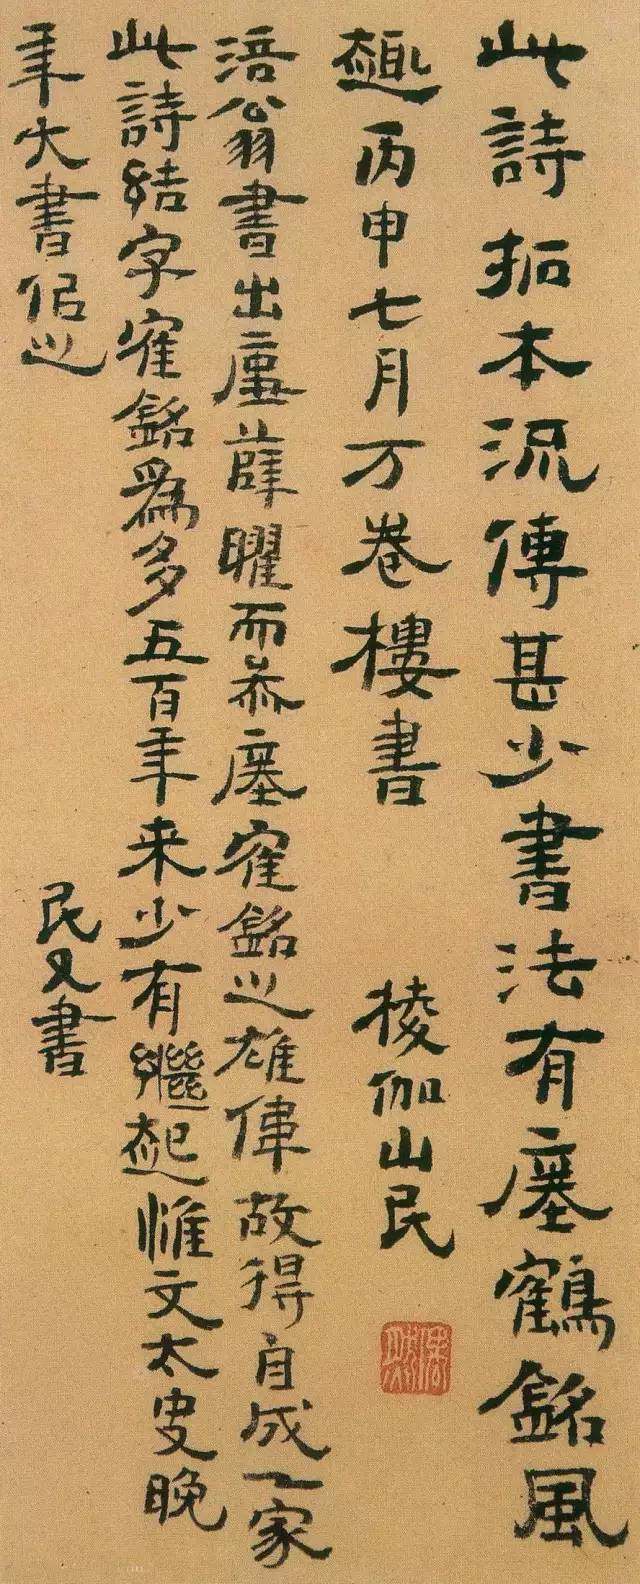 此詩拓本流傳甚少書法有瘞鶴銘風
趣丙申七月万卷樓書 棱伽山民
涪翁書出薛曜而叅瘞寉銘之雄偉故得自成一家
此詩結字寉銘為多五百年来少有繼起惟文太史晚
年大書侣之 民又書